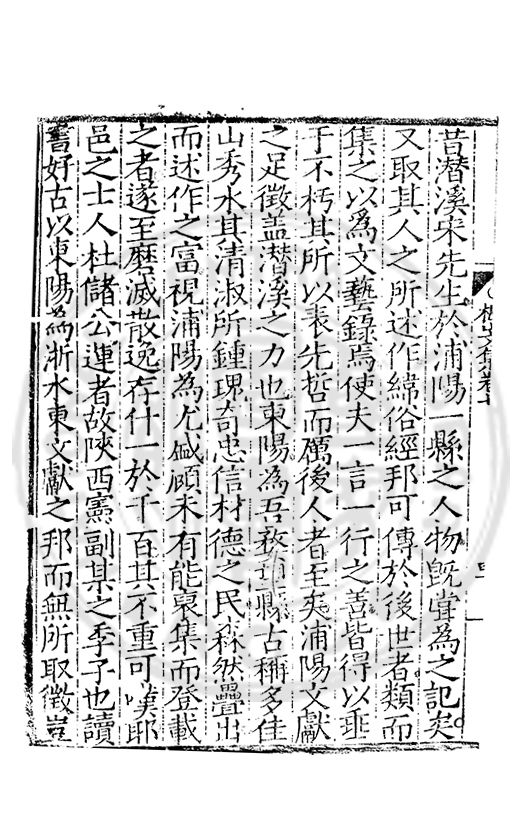 昔潛溪宋先生於浦陽一縣之人物旣嘗為之記矣
又取其人之所述作綿俗經邦可傳於後世者類而
集之以為文藝錄焉使夫一言一行之善皆得以垂
于不朽其所以表先哲而厲後人者至矣浦陽文獻
之足徵蓋潛溪之力也東陽為吾婺望縣古稱多佳
山秀水其清淑所鍾瓌奇忠信材德之民森然疊出
而述作之富視浦陽為尤盛顧未有能裒集而登載
之者遂至磨滅散逸存什一於千百其不重可嘆耶
邑之士人杜儲公蓮者故陝西憲副某之季子也讀
書好古以東陽為浙水東文獻之邦而無所取徵豈